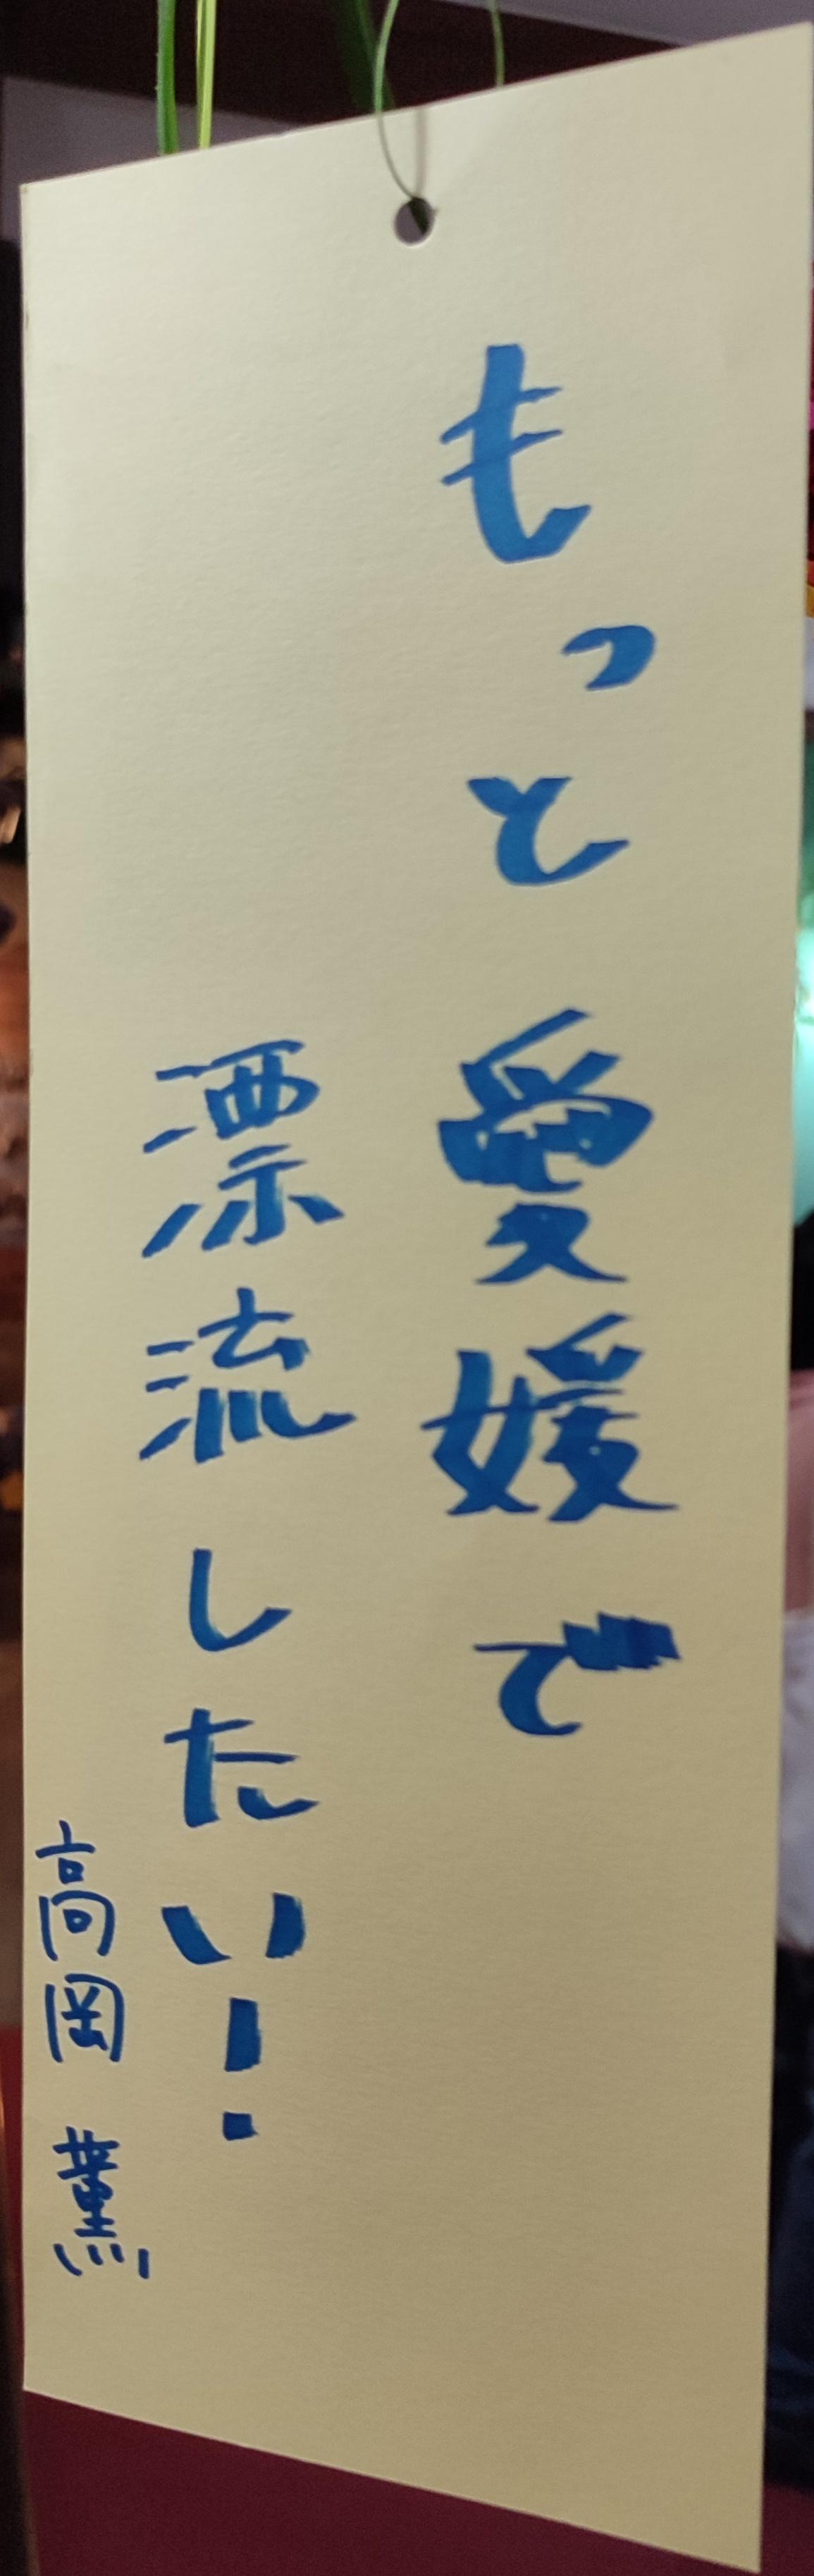 もっと愛媛で
漂流したい!
高岡 薫